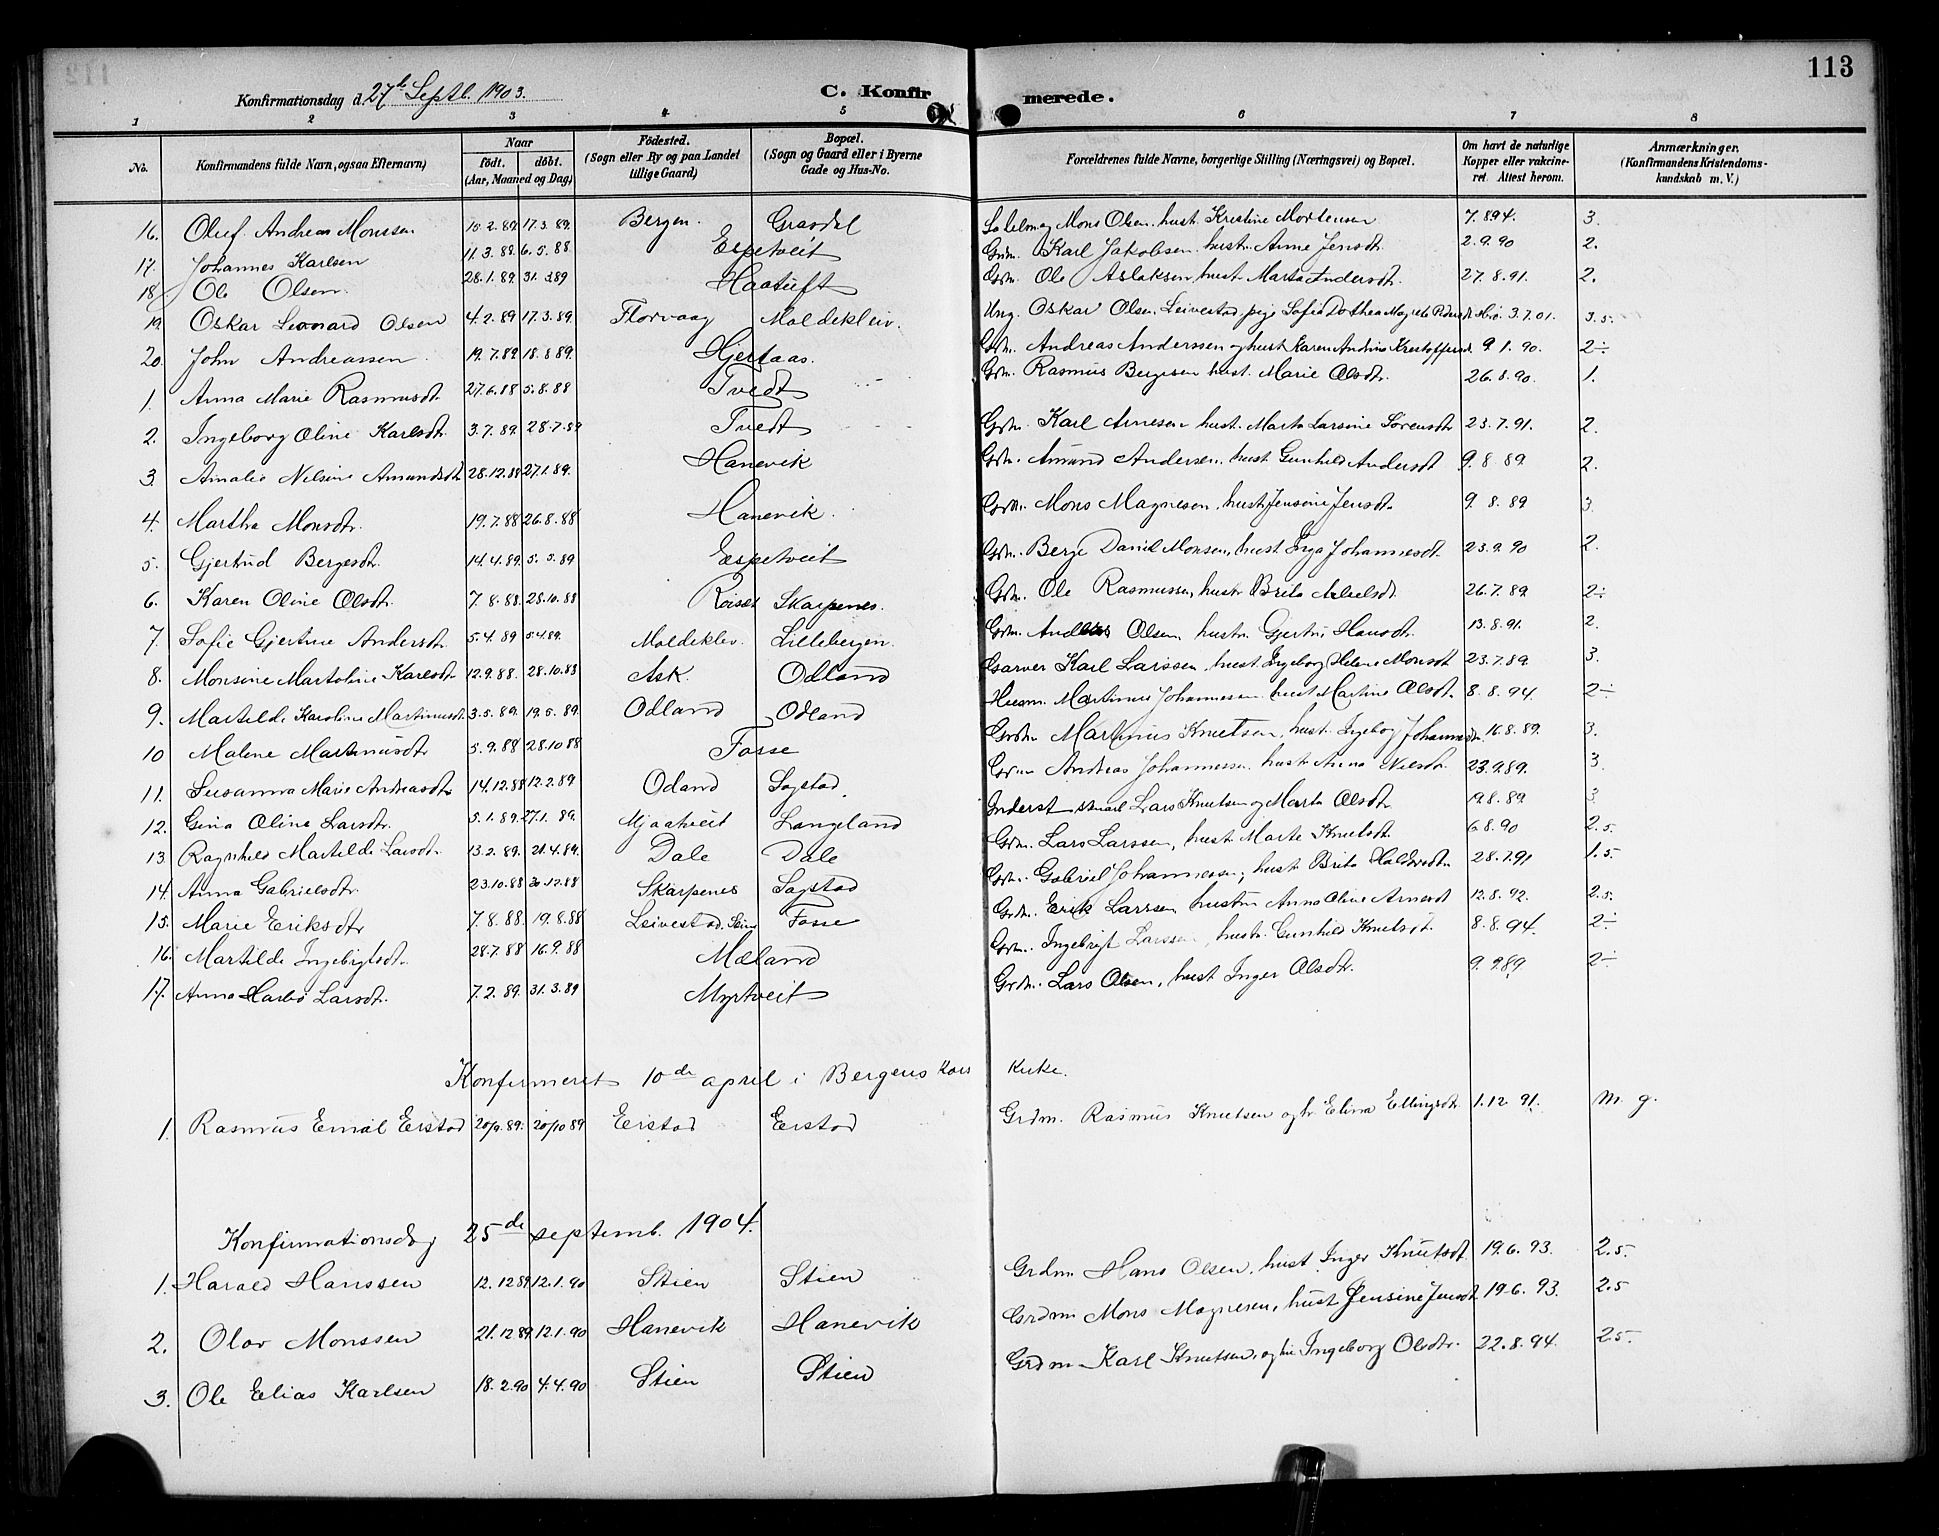 113
Konfirmationsdag d. 27de Septb. 1903. C. Konfirmerede.
1 2 3 4 5 6 7 8
No. Konfirmandens fulde Navn, ogsaa Efternavn) Naar født. døbt. (Aar, Maaned og Dag) Fødested. (Sogn eller By og paa Landet tillige Gaard) Bopæl. (Sogn og Gaard eller i Byerne Gade og Hus-No. Forældrenes fulde Navne, borgerlige Stilling (Næringsvei) og Bopæl. Om havt de naturlige Kopper eller vakcineret. Attest herom. Anmærkninger. (Konfirmandens Kristendomskundskab m. V.)
16. Oluf Andreas Monssen 10.2.89. 17.3.89. Bergen. Grasdal Mons Olsen, hust. Kristine Mortensen 7.8.94. 3.
17. Johannes Karlsen 11.3.88. 6.5.88. Espetveit Grdm. Karl Jakobsen hustr. Anne Jensdtr. 2.9.90 2.
18. Ole Olsen. 28.1.89 31.3.89 Haatuft Grdm. Ole Aslaksen, hust. Marta Andersdtr. 27.8.91. 2.
19. Oskar Leonard Olsen 4.2.89 17.3.89. Florvaag Moldekleiv. Ung. Oskar Olsen Leivestad, pige Sofie Dorthea 3.7.01. 3.5.
20. John Andreassen 19.7.89 18.8.89. Hjertaas. Grdm. Andreas Anderssen og hust Karen Andrine Kristoffersd. 9.1.90. 2÷
1. Anna Marie Rasmusdtr. 27.6.88 5.8.88 Tvedt Grdm. Rasmus Bergesen hust. Marie Olsdtr. 26.8.90. 1.
2. Ingeborg Oline Karlsdtr. 3.7.89. 28.7.89 Tvedt Grdm. Karl Arnesen hust. Marta Larsine Sørensdtr 23.7.91. 2.
3. Amalie Nilsine Amundsdtr 28.12.88 27.1.89. Hanevik Grdm. Amund Andersen, hust Gunhild Andersdt 9.8.89. 2.
4. Martha Monsdtr. 19.7.88 26.8.88 Hanevik. Grdm. Mons Magnesen, hust Jensine Jensdtr. 9.8.89 3.
5. Gjertrud Bergesdtr. 14.4.89. 5.5.89 Espetveit Grdm. Berge Daniel Monsen, hust Inga Johannesdt. 23.9.90 2.
6. Karen Oline Olsdtr. 7.8.88. 28.10.88 Roiset Skarpenes. Grdm. Ole Rasmussen, hustr Brita 26.7.89 2÷
7. Sofie Gjertine Andersdtr. 5.4.89 5.4.89. Moldeklev. Lillebergen. Grdm. Olsen, hustr. Gjertru Hansdtr. 13.8.91. 2.
8. Monsine Martoline Karlsdtr. 12.9.88. 28.10.88 Ask. Odland Garver Karl Larssen, hust. Ingeborg Helene Monsdt 23.7.89. 3.
9. Martilde Karoline Martinusdt. 3.5.89. 19.5.89. Odland Odland Husm. Martinus Johannesen, hust Martine Olsdtr. 8.8.94. 2÷
10 Malene Martinusdtr 5.9.88 28.10.88 Fosse Grdm. Martinus Knutsen, hust. Ingeborg Johannesdtr. 16.8.89. 3.
11. Susanna Marie Andreasdtr 14.12.88 12.2.89 Odland Sogstad. Grdm Andreas Johannessen hust. Anna Nilsdtr. 23.9.89. 3.
12. Gina Oline Larsdtr. 5.1.89. 27.1.89. Mjaatveit Langeland Inderst Lars Knutsen og Marta Olsdtr 19.8.89. 3
13. Ragnhild Martilde Larsdtr. 13.2.89. 21.4.89. Dale Dale Grdm. Lars Larssen, hust. Marte Knutsdtr. 6.8.90 2.5.
14. Anna Gabrielsdtr. 23.10.88 30.12.88 Skarpenes Sogstad Grdm. Gabriel Johannessen, hust Brita Haldorsdtr. 28.7.91 1.5.
15. Marie Eriksdtr 7.8.88. 19.8.88 Leivestad, Fosse Grdm. Erik Larssen, hustru Anna Oline Arnesdt 12.8.92. 2.5.
16. Martilde Ingebrigtsdtr. 28.7.88 16.9.88 Mæland Grdm. Ingebrigt Larssen, hustr. Gunhild Knutsdt. 8.8.94. 2÷
17. Anna Larsdtr. 7.2.89. 31.3.89 Myrtveit Grdm. Lars Olsen, hust Inger Olsdtr. 9.9.89 2÷
Konfirmeret 10de april i Bergens Kors Kirke.
1. Rasmus Emil Eirstad 20/9.89. 20/10 89 Eirstad Eirstad Grdm. Rasmus Knutsen og h. Elina Ellingsdtr. 1.12.91. m. g.
Konfirmationsdag 25de septemb. 1904.
1. Harald Hanssen 12.12 89 12.1.90 Stien Stien Grdm. Hans Olsen, hust. Inger Knutsdt. 19.6.93. 2.5.
2. Olav Monssen 21.12 89 12.1.90 Hanevik Hanevik Grdm Mons Magnesen, hust. Jensine Jensdt. 19.6.93. 2.5
3. Ole Elias Karlsen 18.2.90 4.4.90 Stien Stien Grdm. Karl Knutsen, og hu Ingeborg Olsdtr. 22.8.94. 2.5.